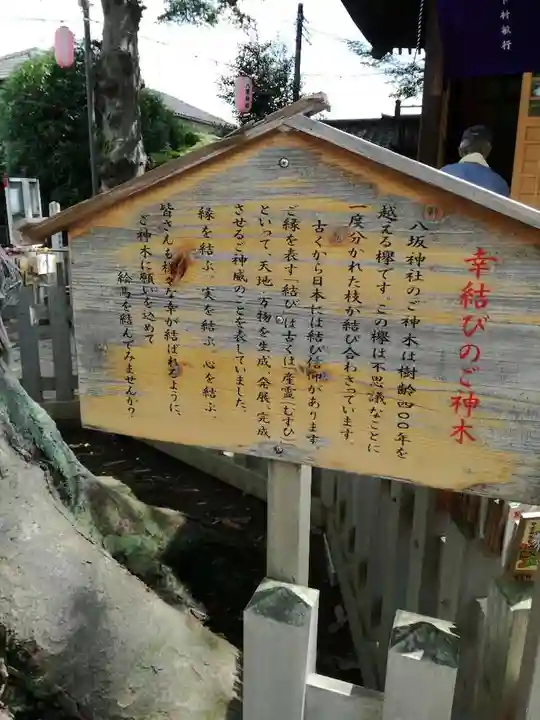 幸結びのご神木
八坂神社のご神木は樹齢四〇〇年を
越える欅です。この欅は不思議なことに
一度分かれた枝が結び合わさっています。
古くから日本には結び信仰があります
ご縁を表す「結び」は古くは「産霊(むすひ)
といって、天地・万物を生成、発展、完成
させるご神威のことを表していました。
縁を結ぶ、実を結ぶ、心を結ぶ、
皆さんも様々な幸が結ばれるように、
ご神木に願いを込めて
絵馬を結んでみませんか?
下村敏行